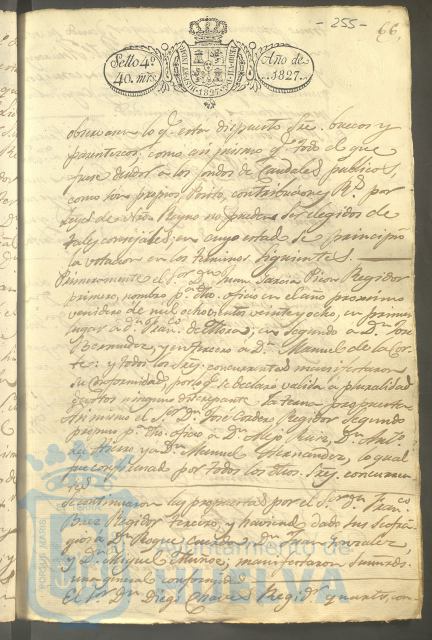 - 255 -
66,
Sello 4º
40. mrs.
Año de
1827.
HISPANIARUM
1827
observarse lo q. está dispuesto sre. huecos y
parentescos, como asi mismo q. todo el que
fuese deudor a los fondos de Caudales publicos,
como son propios, Posito, contribuciones, Rs. por
Leyes de estos Reyno no pueden ser elegidos de
tales concejales; en cuyo estado se principió
la votacion en los terminos siguientes.
Primeramente el Sor. Dn. Juan Garcia Picon Regidor
primero, nombró pa. dho. oficio en el año proximo
venidero de mil ochocientos veinte y ocho, en primer
lugar a Dn. Franco. de Mora, en segundo a Dn. Jose
Bermudez, y en tercero a Dn. Manuel de la Cor-
te: y todos los Sres. concurrentes manifestaron
su conformidad, por lo q. se declaró valida a pluralidad
de votos ninguno discrepante la terna propuesta
Asi mismo el Sor. Dn. José Cordero Regidor Segundo
propuso pa. dho. oficio a Dn. Alejo Ruiz, Dn. Anto.
y a Dn. Manuel Hernandez, lo qual
fue confirmado por todos los dhos. Sres. concurren-
tes
Se continuaron las propuestas por el Sor. Dn. Franco
Baez Regidor tercero, y haviendo dado sus sufra-
gios a Dn. Roque Dn. Juan Gonzalez,
y Dn. Miguel Muñoz; manifestaron
una general conformidad
El Sor. Dn. Diego Chaves Regidr. quarto, con-
Ayuntamiento de
HUELVA
PORTUS MARIS